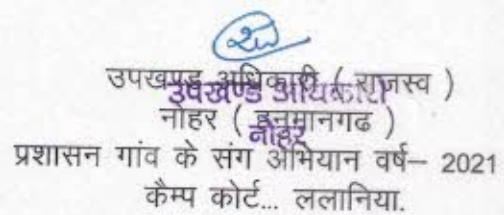 उपखण्ड अधिकारी ( राजस्व )
उपखण्ड अधिकारी
नोहर ( हनुमानगढ )
नोहर
प्रशासन गांव के संग अभियान वर्ष– 2021
कैम्प कोर्ट... ललानिया.